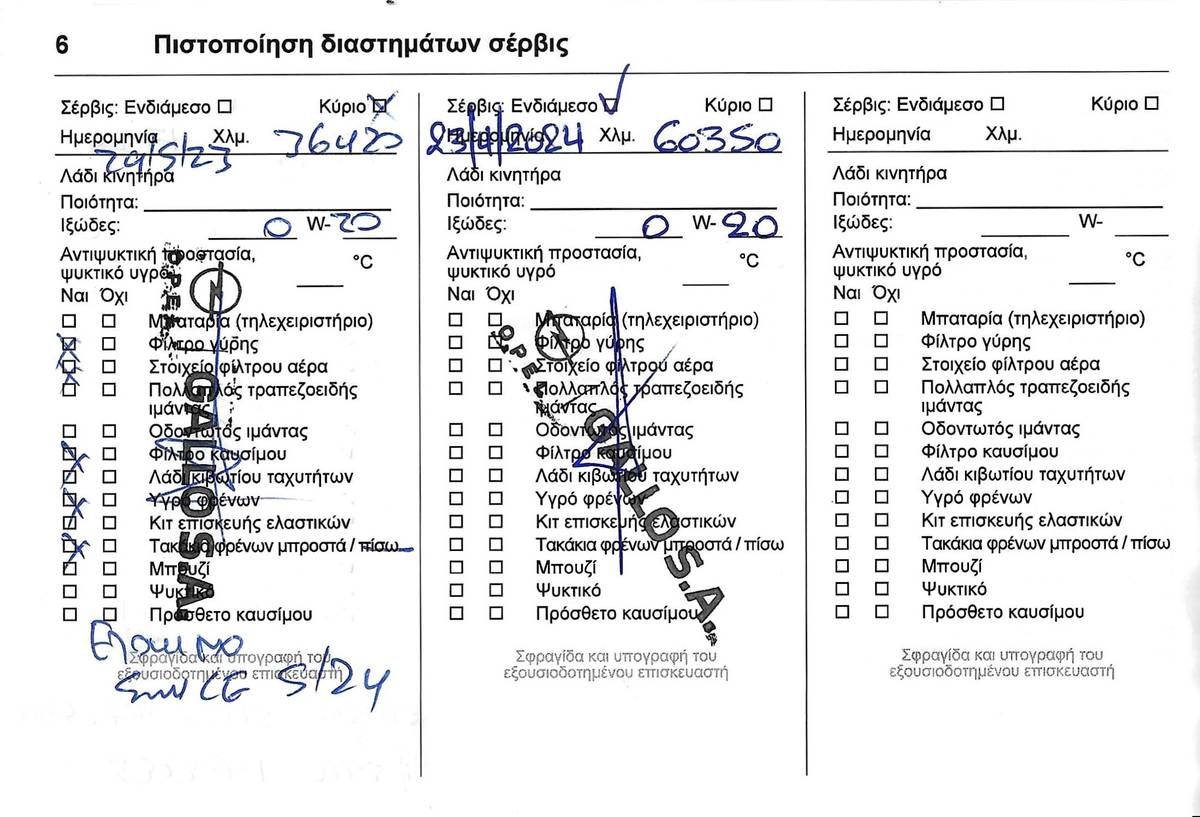 6 Πιστοποίηση διαστημάτων σέρβις
Σέρβις: Ενδιάμεσο □ Κύριο □
Ημερομηνία Χλμ. 36420
29/5/23
Λάδι κινητήρα
Ποιότητα:
Ιξώδες: 0 W-20
Αντιψυκτική προστασία,
ψυκτικό υγρό °C
Ναι Όχι
□ □ Μπαταρία (τηλεχειριστήριο)
□ □ Φίλτρο γύρης
□ □ Στοιχείο φίλτρου αέρα
□ □ Πολλαπλός τραπεζοειδής
ιμάντας
□ □ Οδοντωτός ιμάντας
□ □ Φίλτρο καυσίμου
□ □ Λάδι κιβωτίου ταχυτήτων
□ □ Υγρό φρένων
□ □ Κιτ επισκευής ελαστικών
□ □ Τακάκια φρένων μπροστά / πίσω
□ □ Μπουζί
□ □ Ψυκτικό
□ □ Πρόσθετο καυσίμου
OPEL
GALLO S.A
Σφραγίδα και υπογραφή του
εξουσιοδοτημένου επισκευαστή
5/24
Σέρβις: Ενδιάμεσο □ Κύριο □
Ημερομηνία Χλμ. 60350
23/4/2024
Λάδι κινητήρα
Ποιότητα:
Ιξώδες: 0 W-20
Αντιψυκτική προστασία,
ψυκτικό υγρό °C
Ναι Όχι
□ □ Μπαταρία (τηλεχειριστήριο)
□ □ Φίλτρο γύρης
□ □ Στοιχείο φίλτρου αέρα
□ □ Πολλαπλός τραπεζοειδής
ιμάντας
□ □ Οδοντωτός ιμάντας
□ □ Φίλτρο καυσίμου
□ □ Λάδι κιβωτίου ταχυτήτων
□ □ Υγρό φρένων
□ □ Κιτ επισκευής ελαστικών
□ □ Τακάκια φρένων μπροστά / πίσω
□ □ Μπουζί
□ □ Ψυκτικό
□ □ Πρόσθετο καυσίμου
OPEL
GALLO S.A.
Σφραγίδα και υπογραφή του
εξουσιοδοτημένου επισκευαστή
Σέρβις: Ενδιάμεσο □ Κύριο □
Ημερομηνία Χλμ.
Λάδι κινητήρα
Ποιότητα:
Ιξώδες: W-
Αντιψυκτική προστασία,
ψυκτικό υγρό °C
Ναι Όχι
□ □ Μπαταρία (τηλεχειριστήριο)
□ □ Φίλτρο γύρης
□ □ Στοιχείο φίλτρου αέρα
□ □ Πολλαπλός τραπεζοειδής
ιμάντας
□ □ Οδοντωτός ιμάντας
□ □ Φίλτρο καυσίμου
□ □ Λάδι κιβωτίου ταχυτήτων
□ □ Υγρό φρένων
□ □ Κιτ επισκευής ελαστικών
□ □ Τακάκια φρένων μπροστά / πίσω
□ □ Μπουζί
□ □ Ψυκτικό
□ □ Πρόσθετο καυσίμου
Σφραγίδα και υπογραφή του
εξουσιοδοτημένου επισκευαστή